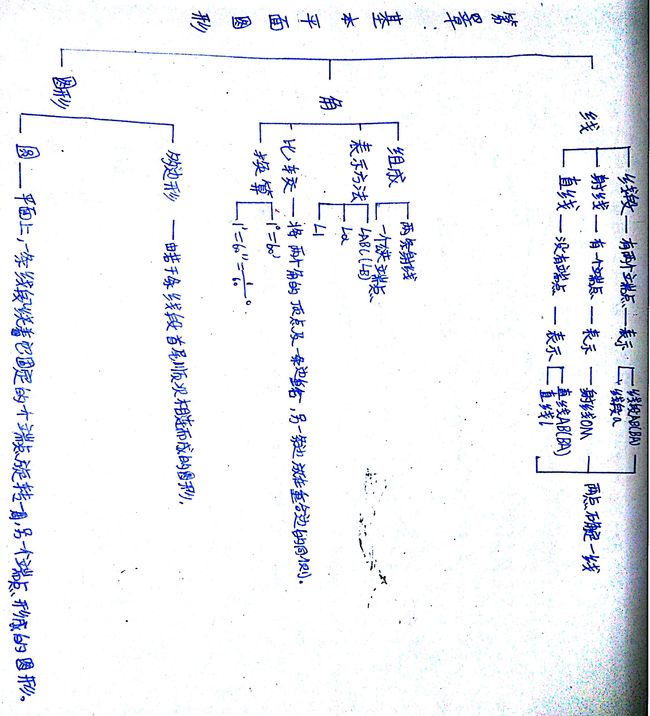 第四章：基本平面图形
线
线段 — 有两个端点 — 表示 线段AB(BA)
线段a
射线 — 有一个端点 — 表示 — 射线OM
直线 — 没有端点 — 表示 直线AB(BA)
直线l
两点确定一线
角
组成 两条射线
一个公共端点
表示方法 ∠ABC(∠B)
∠α
∠1
比较 — 将两个角的顶点及一条边重合，另一条边放在重合边的同侧。
换算 1°=60′
1′=60″=1/60°
图形
多边形 — 由若干条线段首尾顺次相连而成的图形。
圆 — 平面上，一条线段绕着它固定的一个端点旋转一周，另一个端点形成的图形。